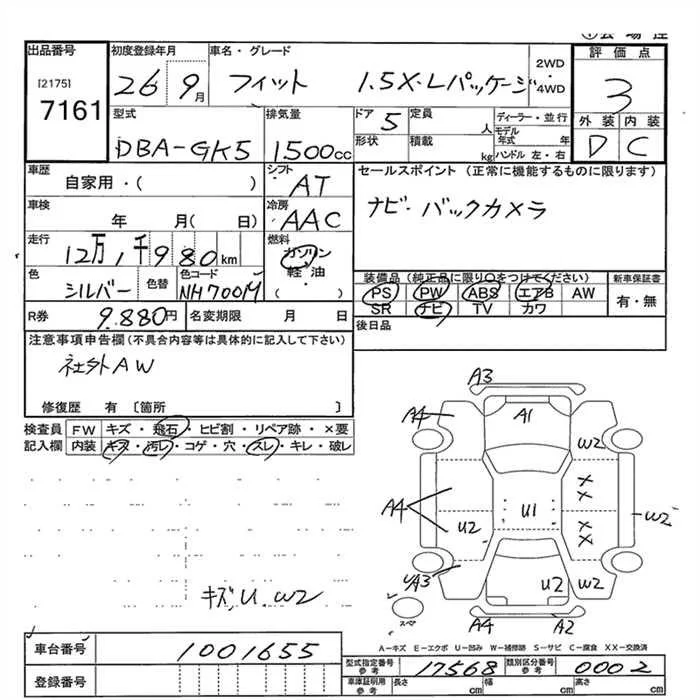 出品番号
[2175]
7161
初度登録年月
26 9月
車名・グレード
フィット 1.5X・Lパッケージ
2WD
・
4WD
評価点
3
外装 内装
D C
型式
DBA-GK5
排気量
1500cc
ドア
5
定員
人
形状
積載
kg
ディーラー・並行
モデル
年式 年
ハンドル 左・右
車歴
自家用・( )
シフト
AT
セールスポイント (正常に機能するものに限ります)
ナビ・バックカメラ
車検
年 月( 日)
冷房
AAC
走行
12万1千980km
燃料
ガソリン
軽・油
( )
色
シルバー
色替
色コード
NH700M
装備品(純正品に限り○をつけてください)
PS PW ABS エアB AW
SR ナビ TV カワ
新車保証書
有・無
R券
9.880円
名変期限 月 日
後日品
注意事項申告欄(不具合内容等は具体的に記入して下さい)
社外AW
修復歴 有〔箇所 〕
検査員
記入欄
FW キズ・飛石・ヒビ割・リペア跡・×要
内装 キズ・汚レ・コゲ・穴・スレ・キレ・破レ
キズ、U、W2
A3
A4
A1
W2
A4
U2
U1
X
X
X
X
W2
A3
U2
W2
スペア
A4
A2
A-キズ E-エクボ U-凹み W-補修跡 S-サビ C-腐食 XX-交換済
車台番号
1001655
登録番号
型式指定番号
参考
17568
類別区分番号
参考
0002
車庫証明用
参考
長さ cm 幅 cm 高さ cm